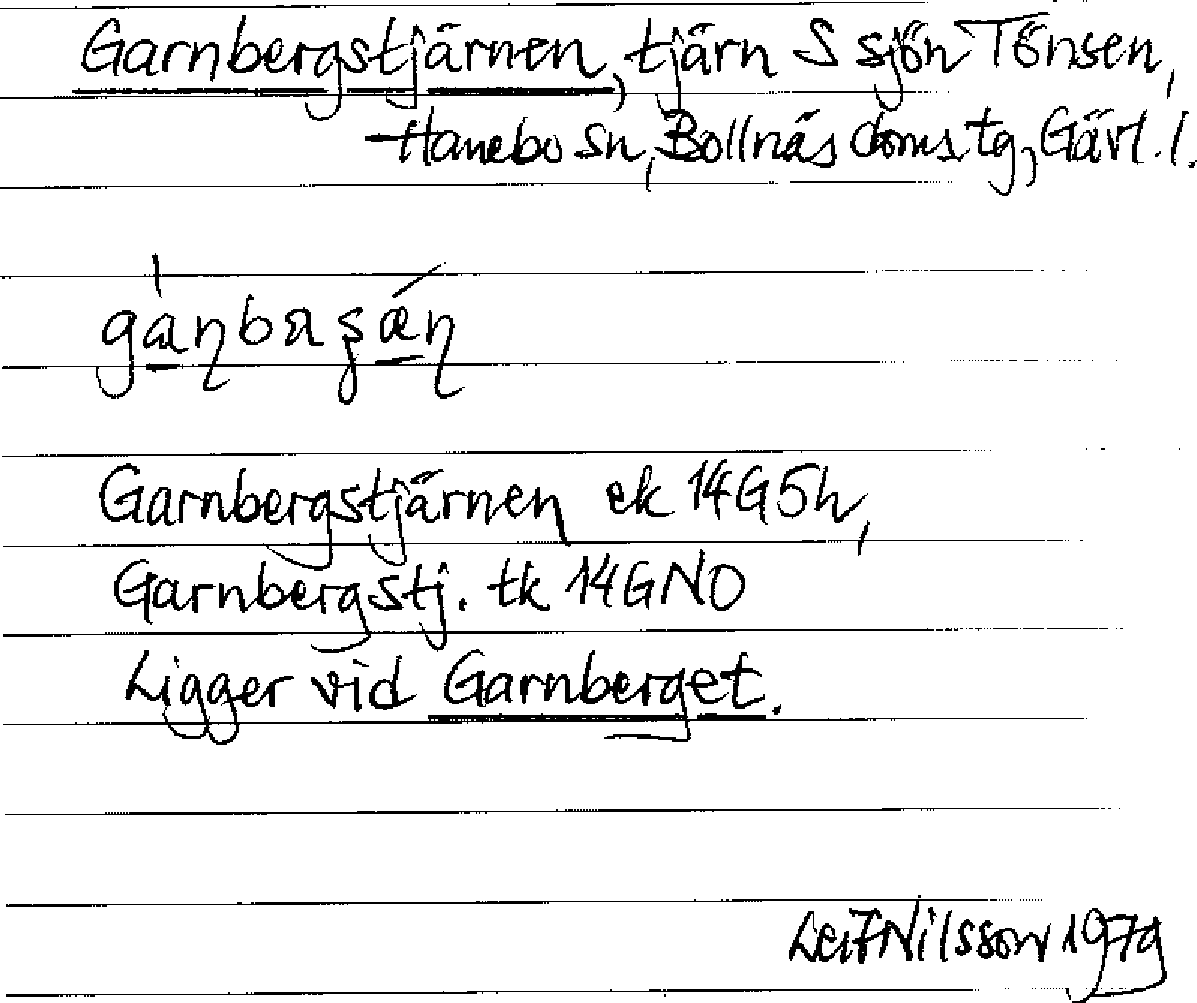 Garnbergstjärnen, tjärn S sjön Tönsen,
Hanebo sn, Bollnäs doms.tg, Gävl.l.
gàṇbaṣǽṇ
Garnbergstjärnen ek 14G5h,
Garnbergstj. tk 14GNO
Ligger vid Garnberget.
Leif Nilsson 1979